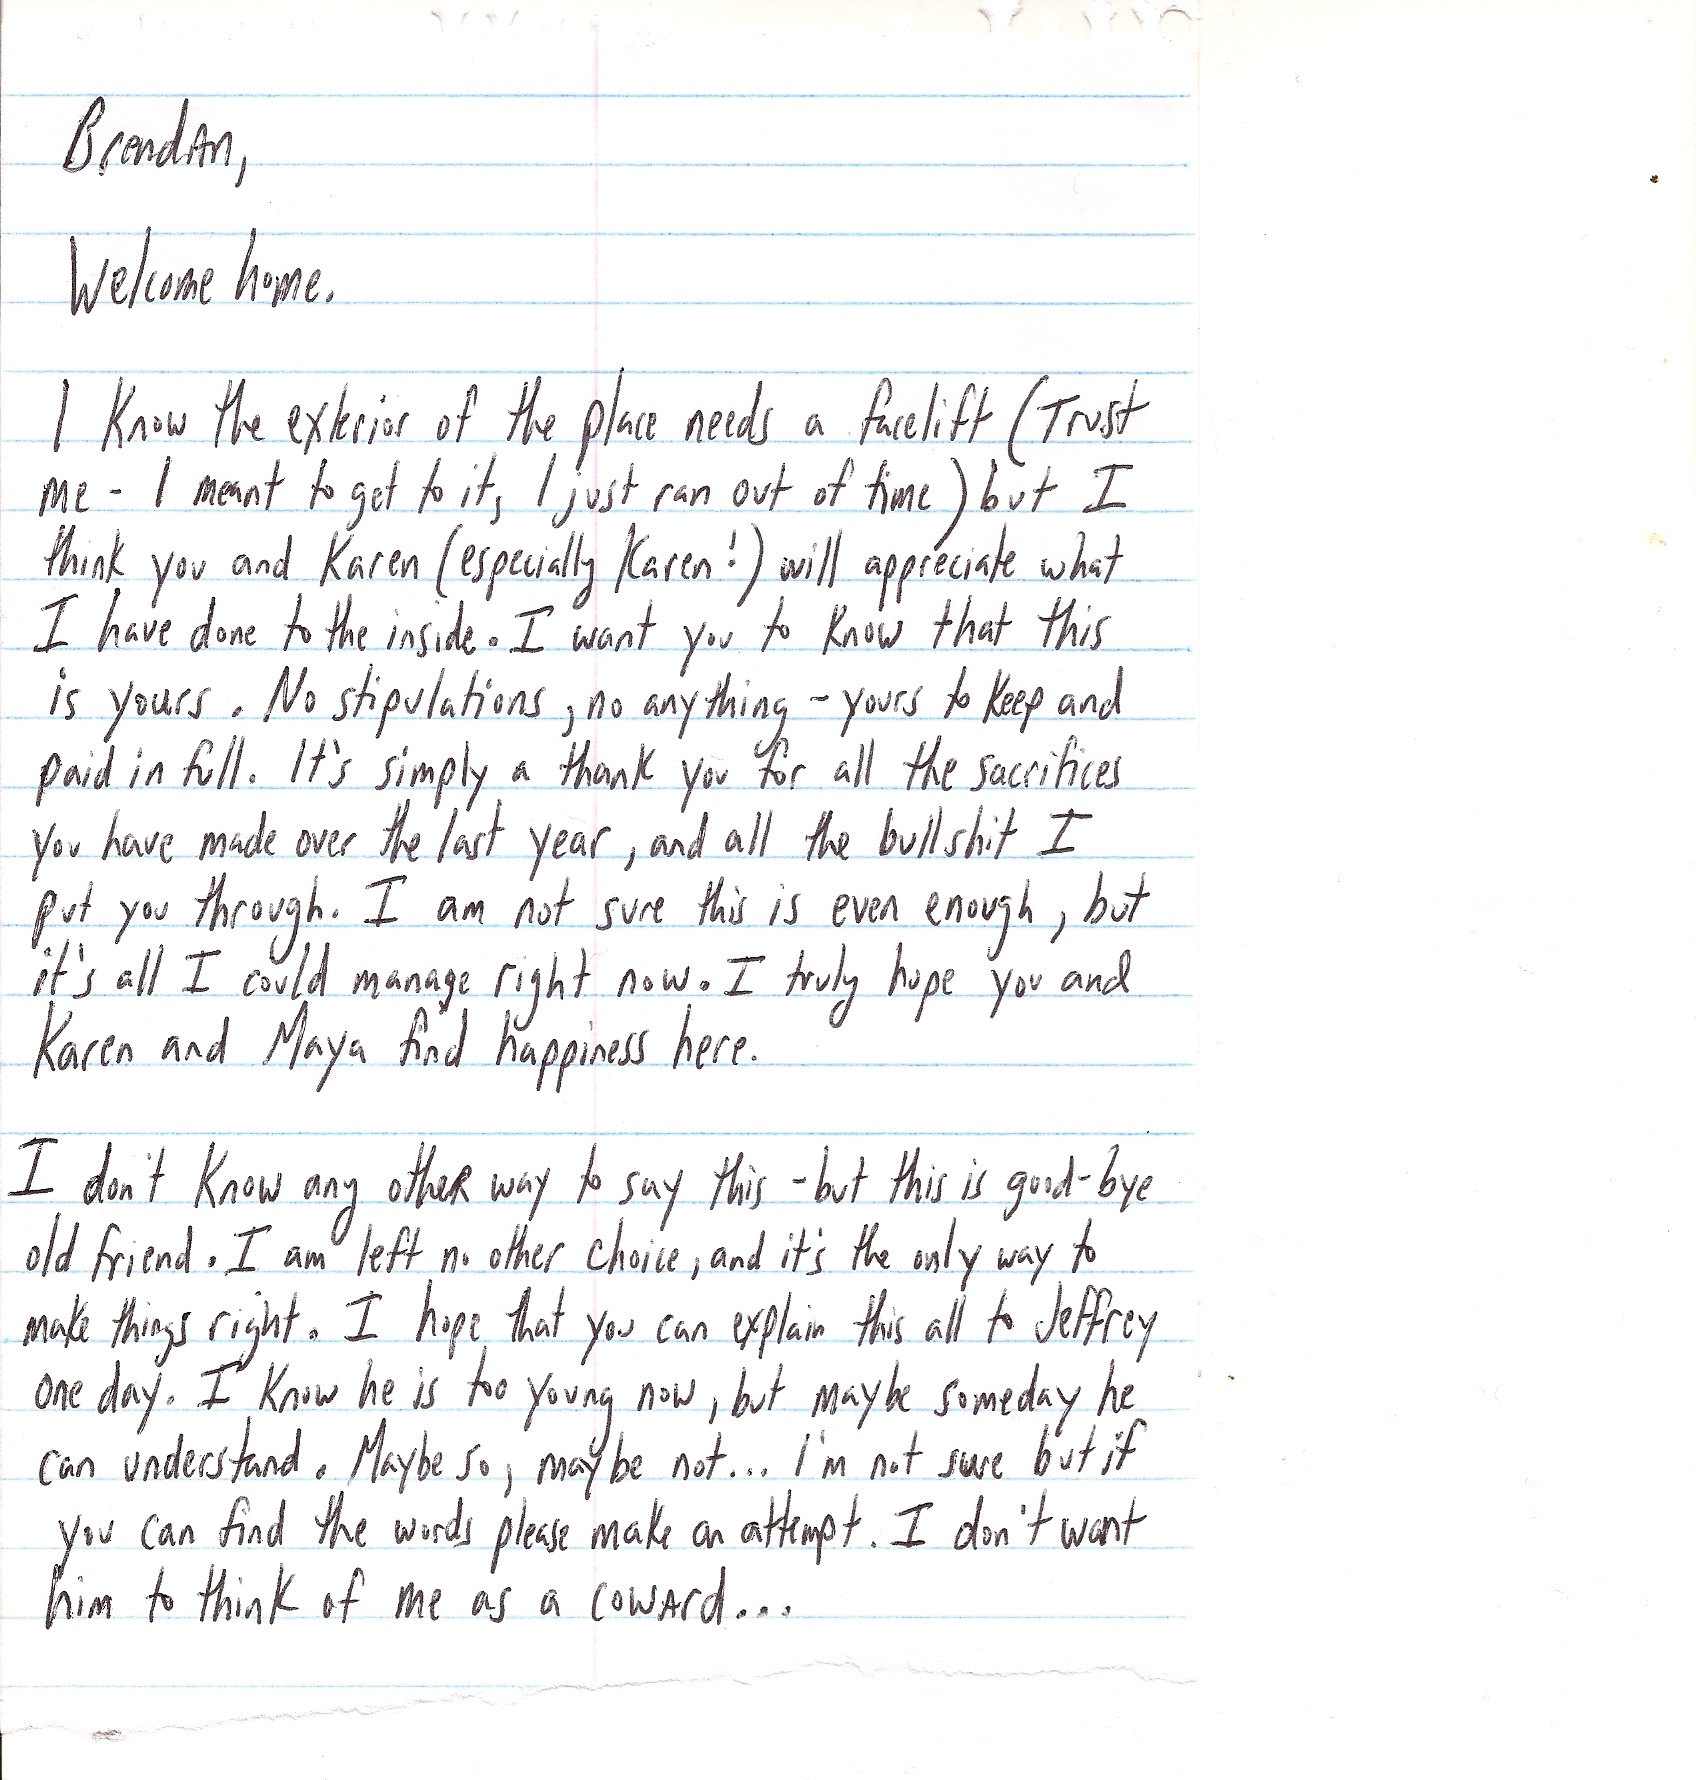 Brendan,
Welcome home.
I know the exterior of the place needs a facelift (Trust
me - I meant to get to it, I just ran out of time) but I
think you and Karen (especially Karen!) will appreciate what
I have done to the inside. I want you to know that this
is yours. No stipulations, no anything - yours to keep and
paid in full. It's simply a thank you for all the sacrifices
you have made over the last year, and all the bullshit I
put you through. I am not sure this is even enough, but
it's all I could manage right now. I truly hope you and
Karen and Maya find happiness here.
I don't know any other way to say this - but this is good-bye
old friend. I am left no other choice, and it's the only way to
make things right. I hope that you can explain this all to Jeffrey
one day. I know he is too young now, but maybe someday he
can understand. Maybe so, maybe not... I'm not sure but if
you can find the words please make an attempt. I don't want
him to think of me as a coward...